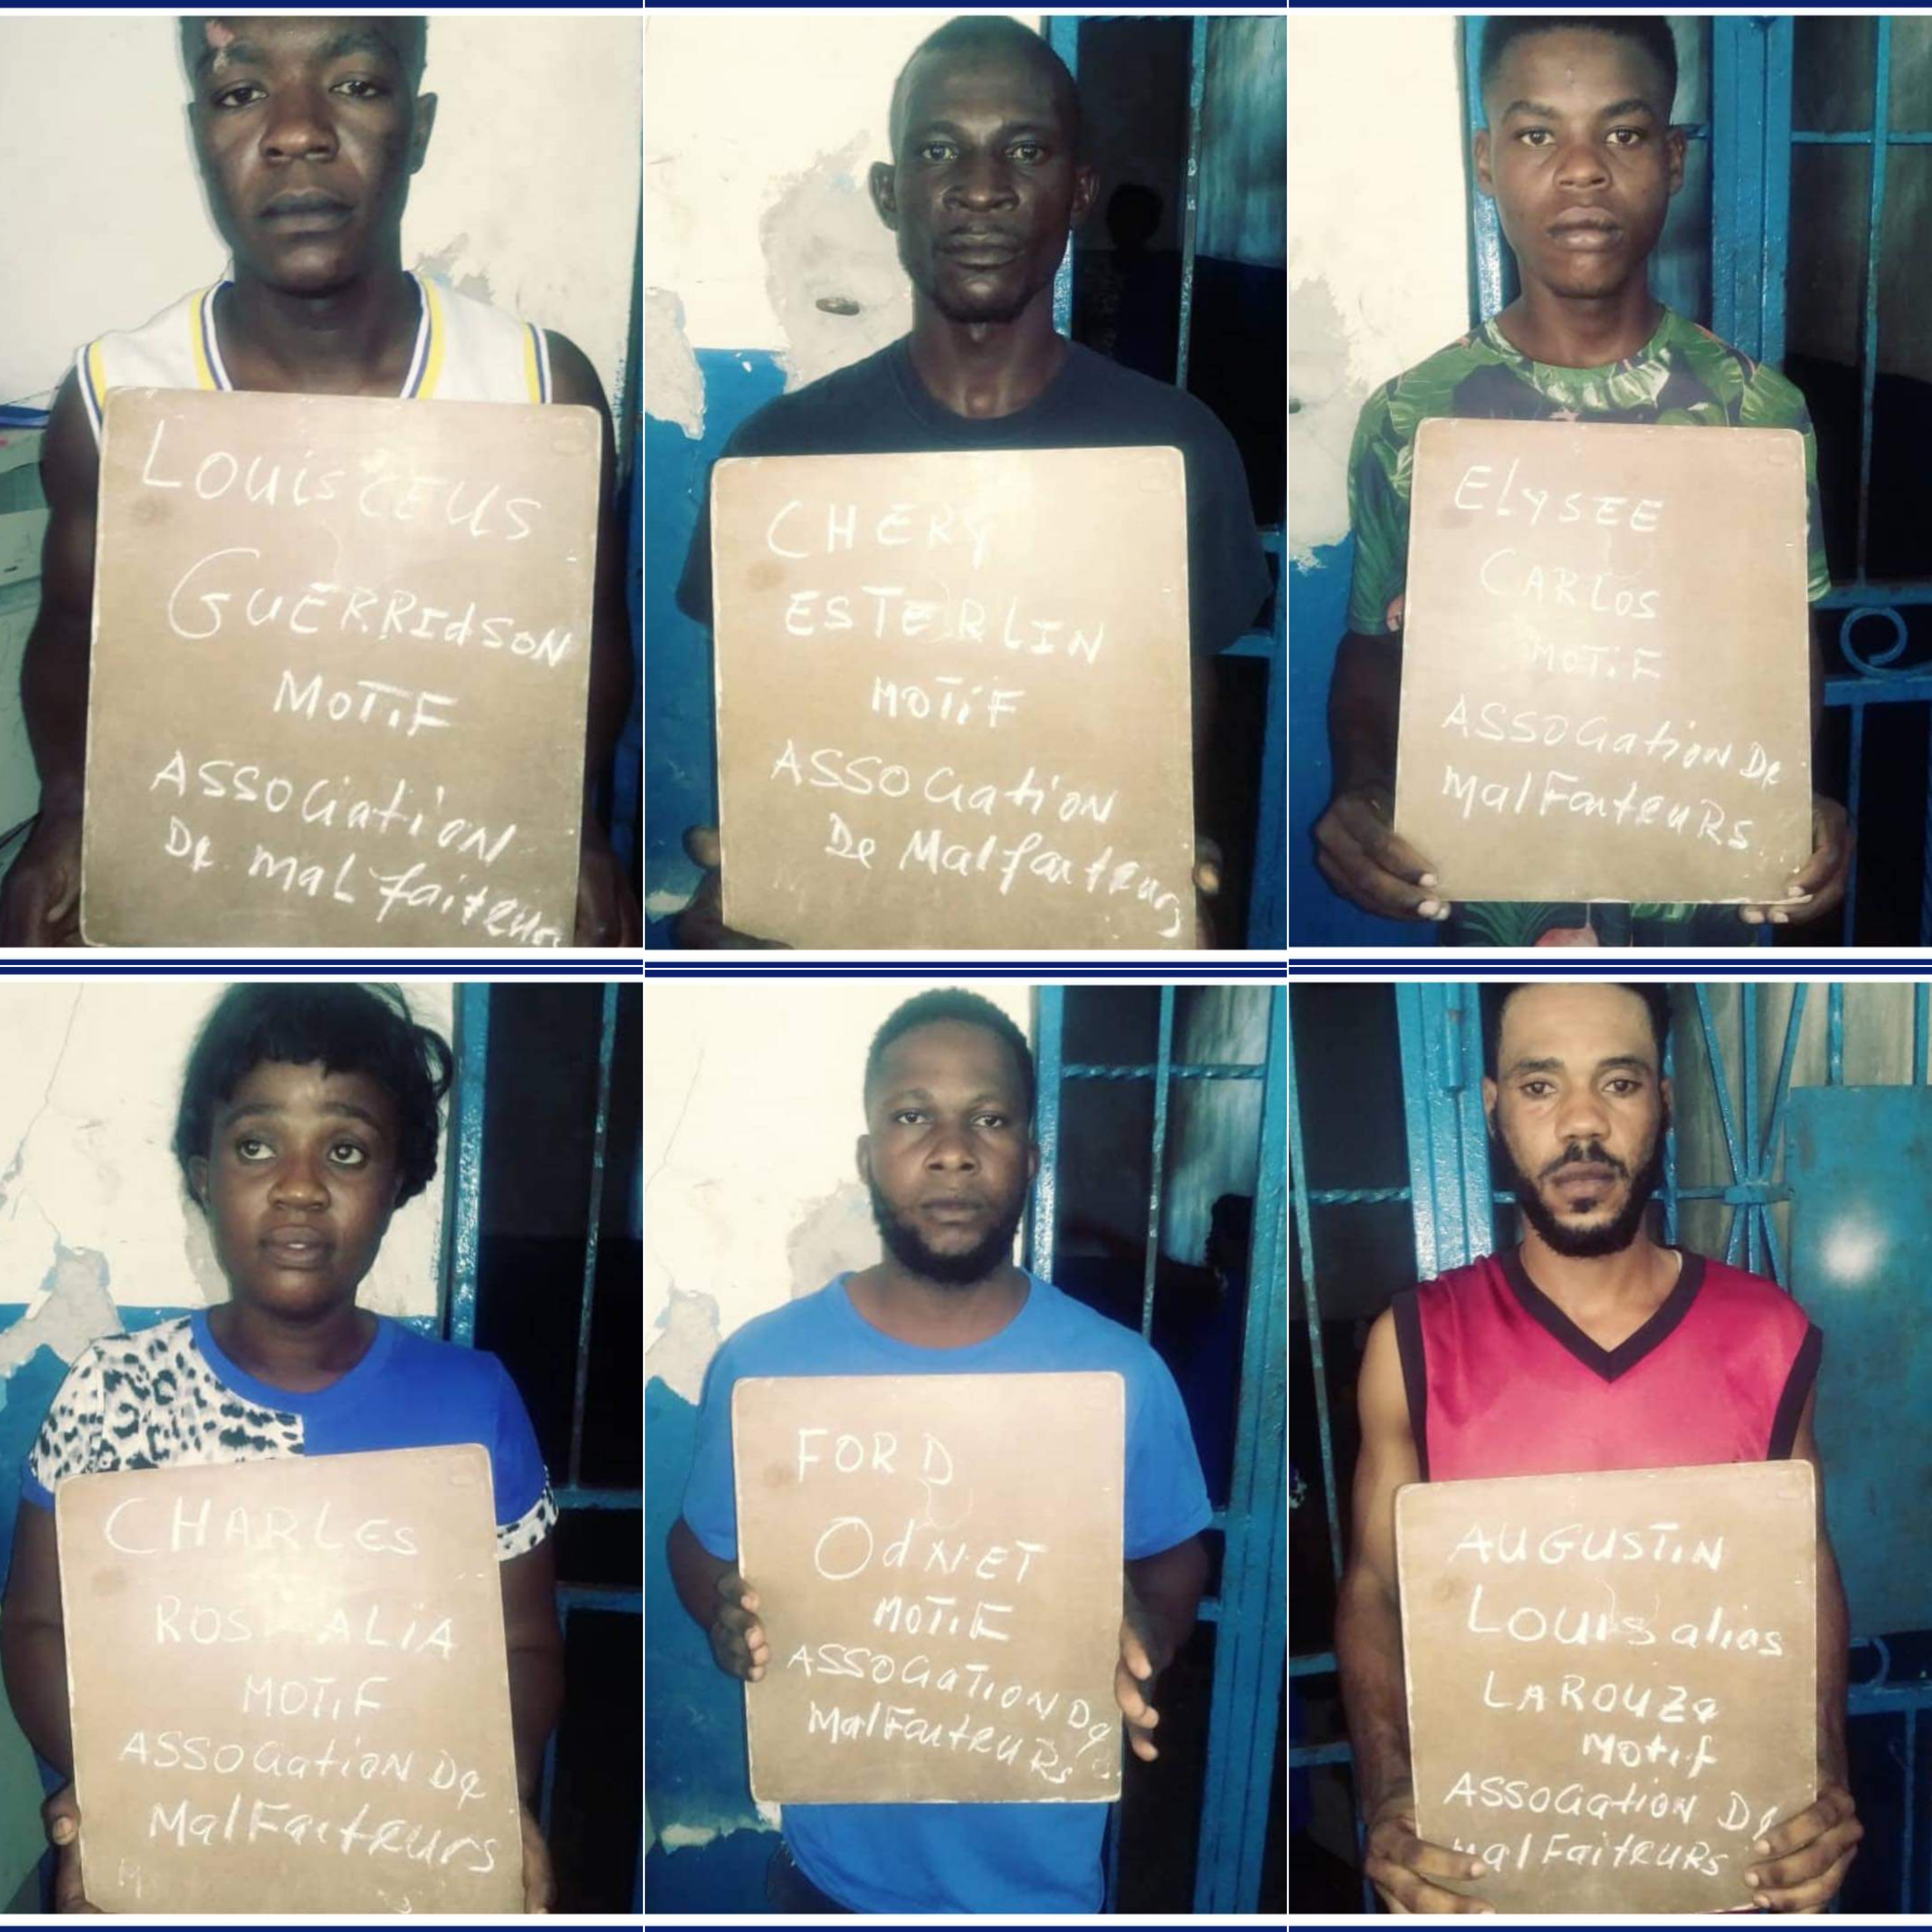 LouisCEUS
GUERRIdSON
MOTiF
ASSOCiation
De malfaiteurs
CHERY
ESTERLIN
MOTiF
ASSOCiation
De Malfaiteurs
ELYSEE
CARLOS
MOTiF
ASSOCiation De
malFaiteuRs
CHARLES
ROS ALiA
MOTiF
ASSOCiation De
MalFaiteurs
FORD
OdNET
MOTiF
ASSOCiATiON De
MalFaiteuRs
AUGUSTiN
Louis alias
LAROUZe
Motif
ASSOCiation De
malFaiteuRs